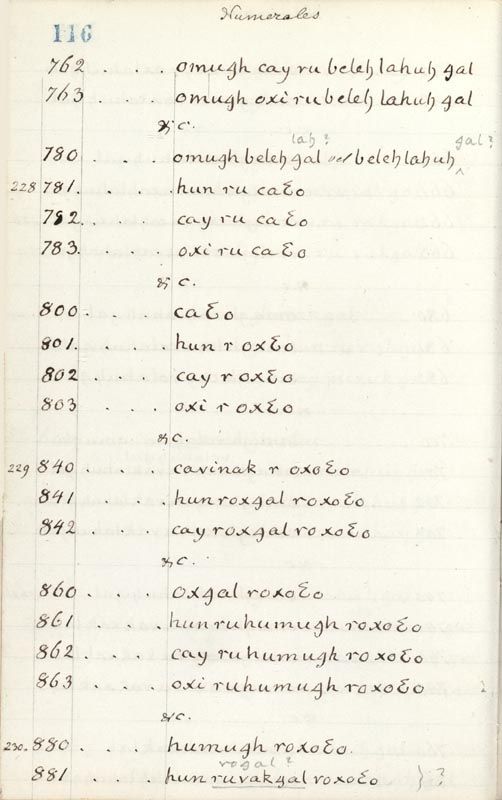 Numerales
116
762 . . . omugh cay ru beleh lahuh gal
763 . . . omugh oxi ru beleh lahuh gal
&c.
lah? gal?
780 . . omugh beleh gal vel beleh lahuh ^
228 781 . . . hun ru caƐo
782 . . . cay ru caƐo
783 . . . oxi ru caƐo
&c.
800 . . . caƐo
801 . . . hun r oxƐo
802 . . . cay r oxƐo
803 . . . oxi r oxƐo
&c.
229 840 . . . cavinak r oxoƐo
841 . . . hun roxgal roxoƐo
842 . . . cay roxgal roxoƐo
&c.
860 . . . oxgal roxoƐo
861 . . . hun ru humugh roxoƐo
862 . . . cay ru humugh roxoƐo
863 . . . oxi ru humugh roxoƐo
&c.
230. 880 . . . humugh roxoƐo.
rogal?
881 . . . hun ruvakgal roxoƐo } ?